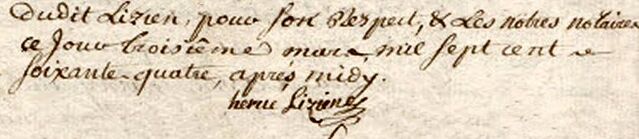 Dudit Lizien, pour son Respect, & Les notres notaires
ce Jour troisième mars mil sept cent
soixante quatre, après midy.
herue Liziene